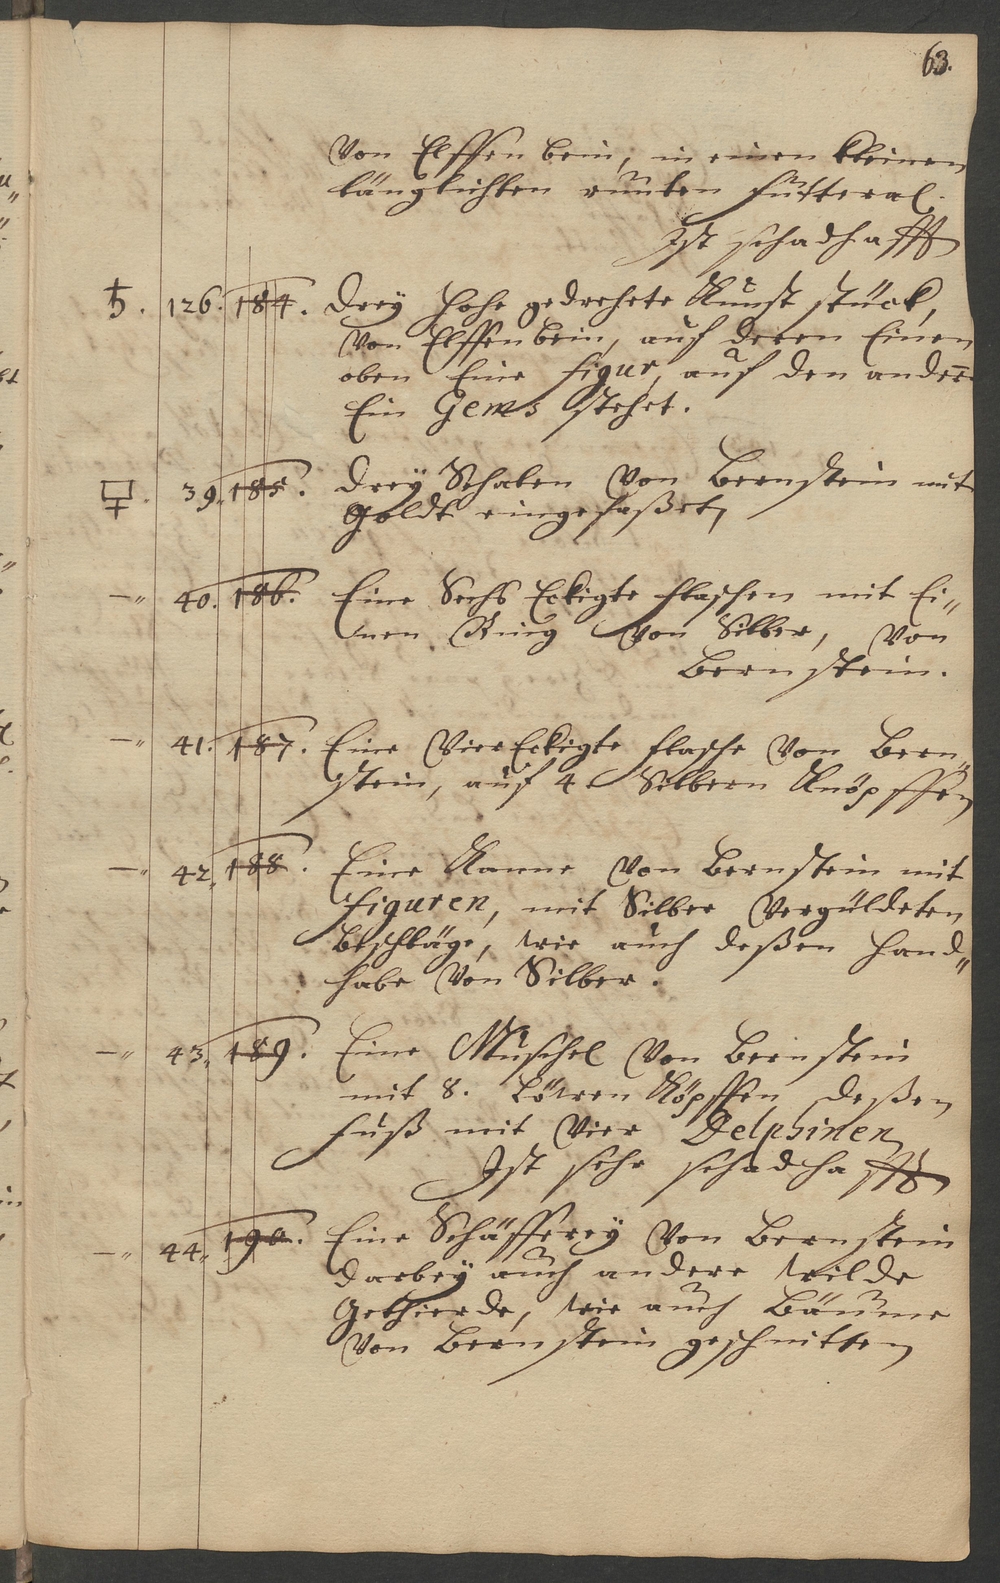 63.
Von Elffen bein, in einen kleinen
länglichten runten Futteral.
Ist schadhafft
♄. 126. 184. Drey hohe gedrehete Kunst stück,
Von Elffenbein, auf deren Einen
oben Eine Figur, auf den andern
Ein Gems stehet.
39. 185. Drey Schalen Von Bernstein mit
Goldt eingefaßet,
—„ 40. 186. Eine Sechs Eckigte flaschen mit Ei„
nen Ring Von Silber, Von
Bernstein.
—„ 41. 187. Eine Vier Eckigte flasche Von Bern„
stein, auf 4 Silbern Knöpffen
—„ 42. 188. Eine Kanne Von Bernstein mit
Figuren, mit Silber Vergüldeten
Beschläge, wie auch deßen Hand„
habe Von Silber.
—„ 43. 189. Eine Muschel Von Bernstein
mit 8. Löwen Köpffen deßen
Fuß mit Vier Delphinen
Ist sehr schadhafft
—„ 44. 190. Eine Schäfferey Von Bernstein
darbey auch andere wilde
Gethierde, wie auch Bäume
Von Bernstein geschnitten